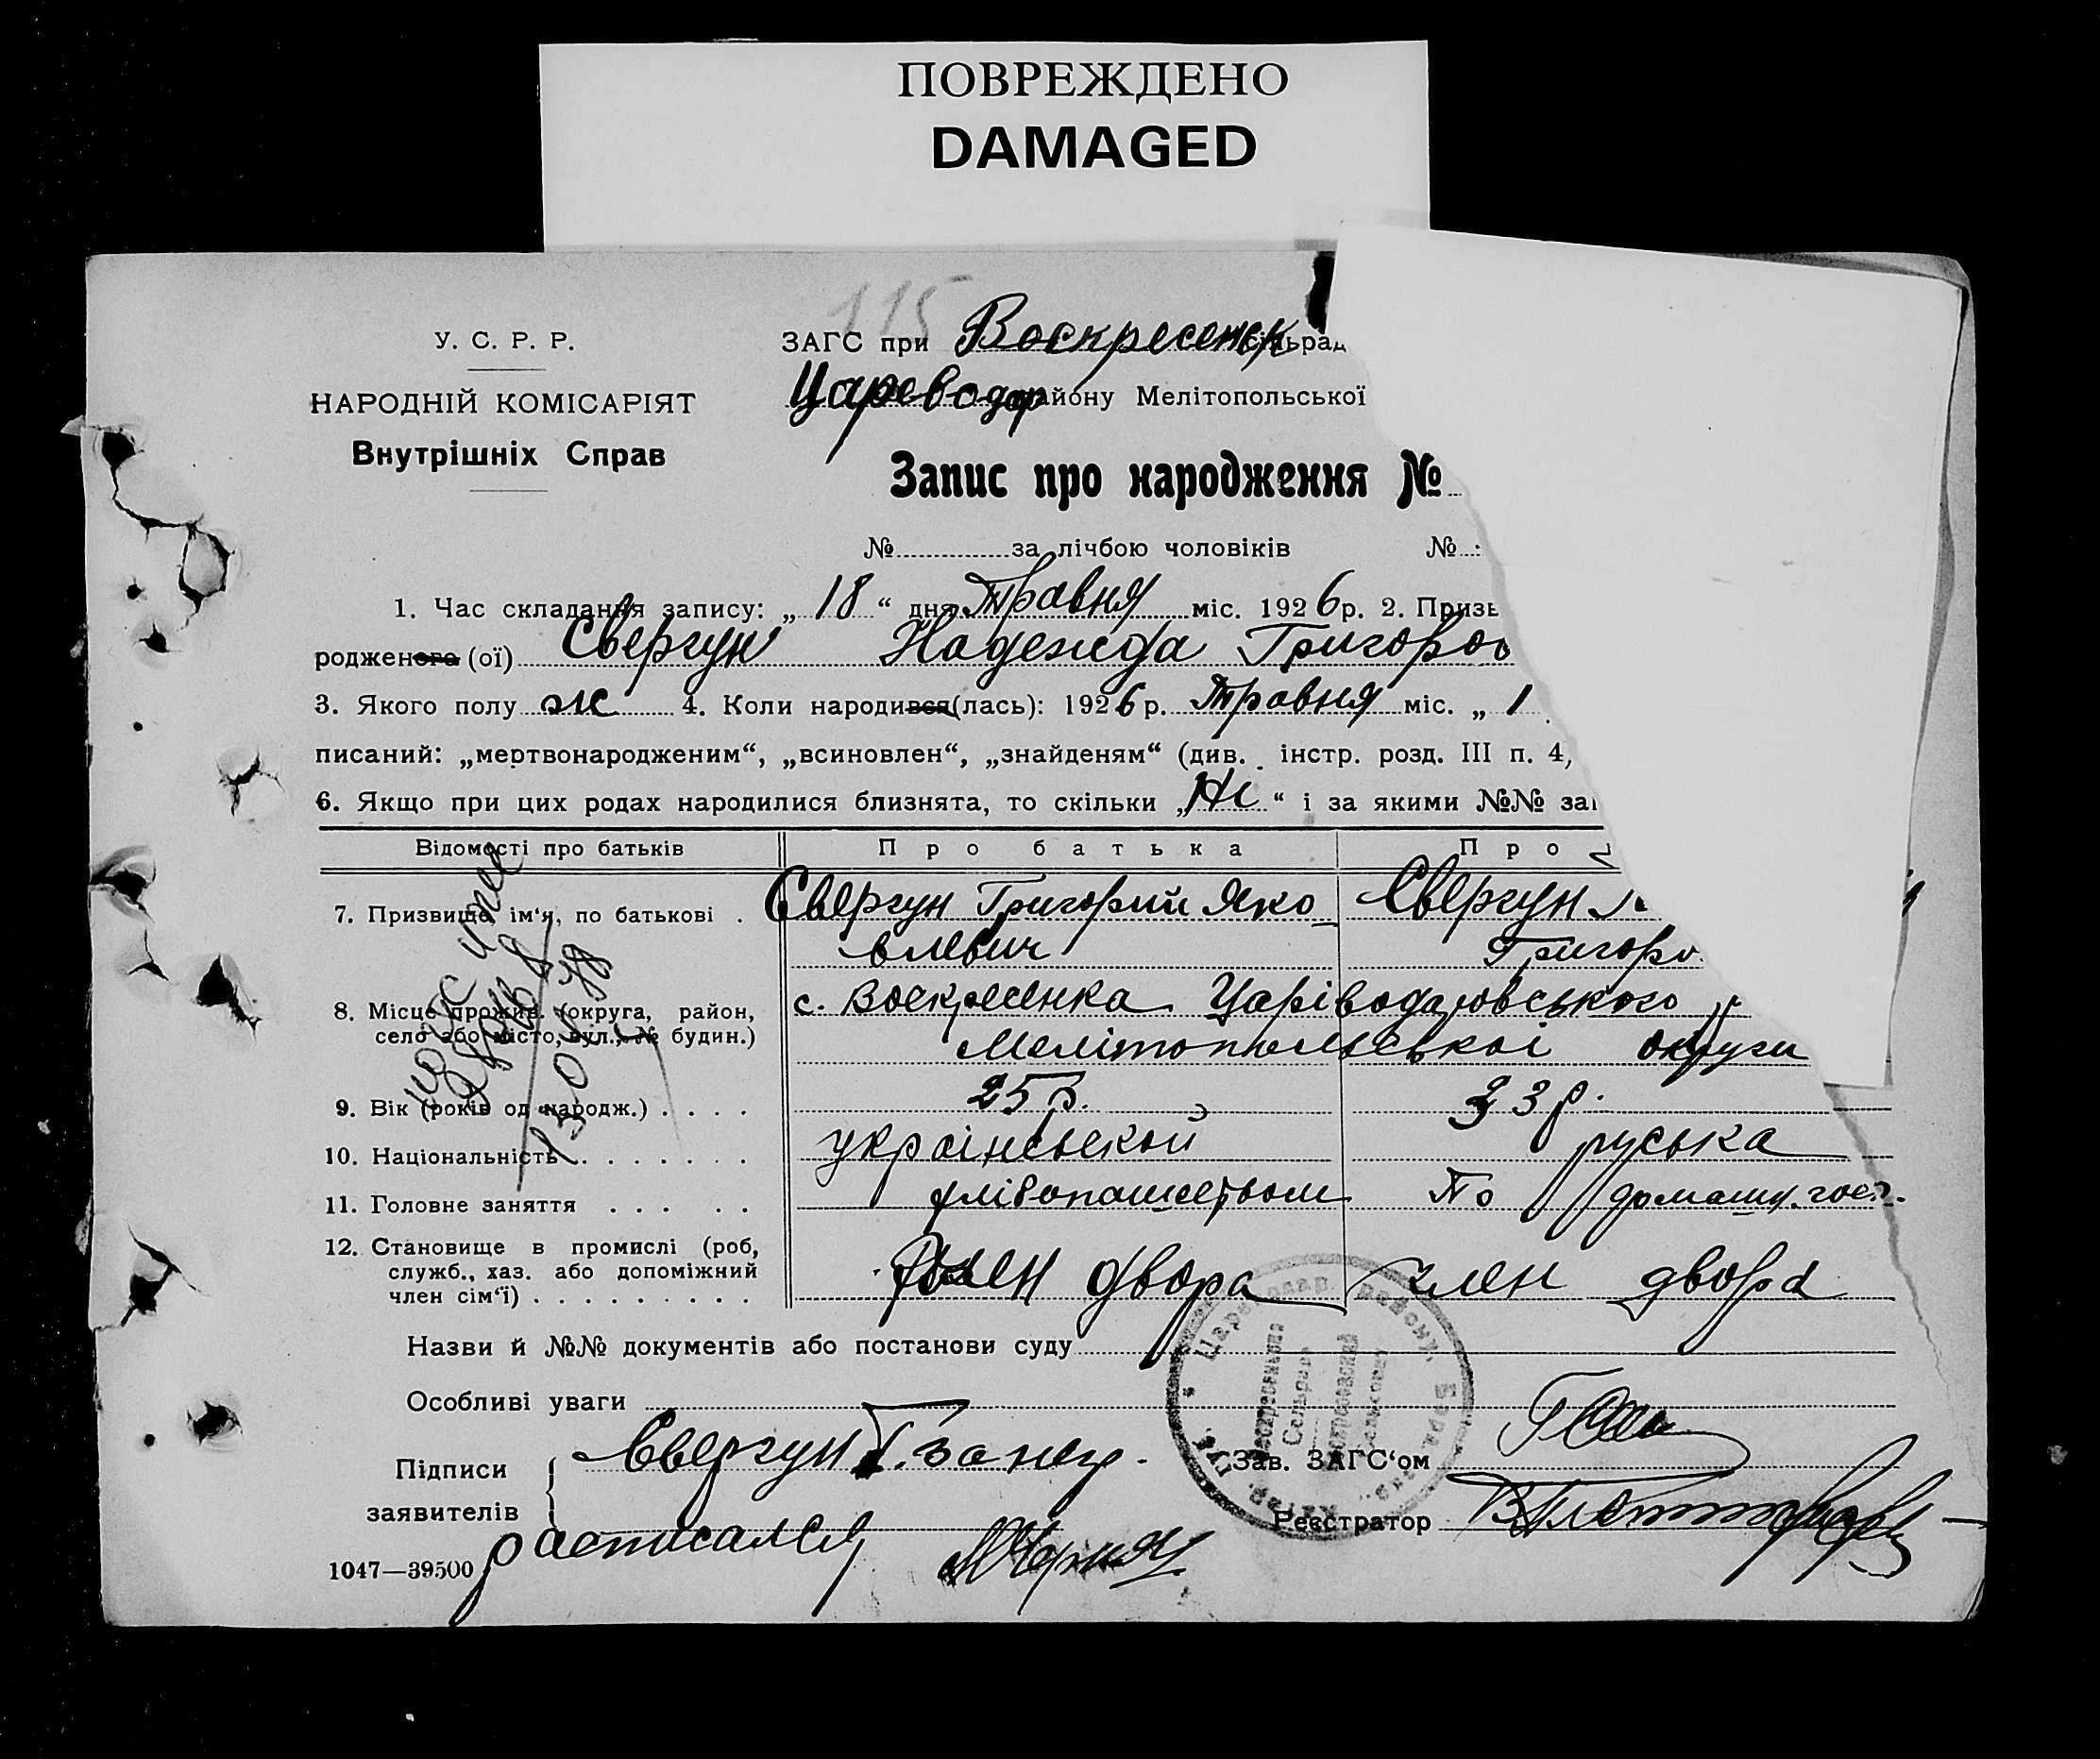 ПОВРЕЖДЕНО
DAMAGED
115
У. С. Р. Р.
НАРОДНІЙ КОМІСАРІЯТ
Внутрішніх Справ
ЗАГС при Воскресенск сільрад
Цареводар району Мелітопольської
Запис про народження №
№ за лічбою чоловіків №
1. Час складання запису: „ 18 “ дня Травня міс. 1926 р. 2. Призв
родженого (ої) Свергун Надежда Григоров
3. Якого полу ж 4. Коли народився (лась): 1926 р. Травня міс. „ 1
писаний: „мертвонародженим“, „всиновлен“, „знайденям“ (див. інстр. розд. III п. 4,
6. Якщо при цих родах народилися близнята, то скільки „ Ні “ і за якими №№ заг
Відомості про батьків Про батька Про
7. Призвище, ім‘я, по батькові . Свергун Григорий Яко Свергун
влевич Григоро
8. Місце прожив. (округа, район, с. Воскресенка Царіводаровського
село або місто, вул., № будин.) Мелітопольської округи
9. Вік (років од народж.) . . . . 25 р. 23 р.
10. Національність . . . . . . . українськой руська
11. Головне заняття . . . . . хлібопашеством По домашн. госп.
12. Становище в промислі (роб,
служб., хаз. або допоміжний член двора член двора
член сім‘ї) . . . . . . . . .
Назви й №№ документів або постанови суду
Особливі уваги
Підписи Свергун Г. за негр.
заявителів
Зав. ЗАГС‘ом
Реєстратор
расписался
1047—39500